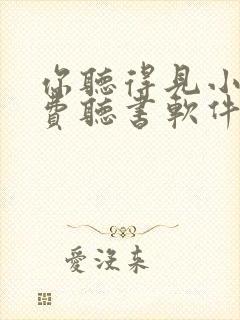 你聽得見小
費聽書軟件
愛沒來